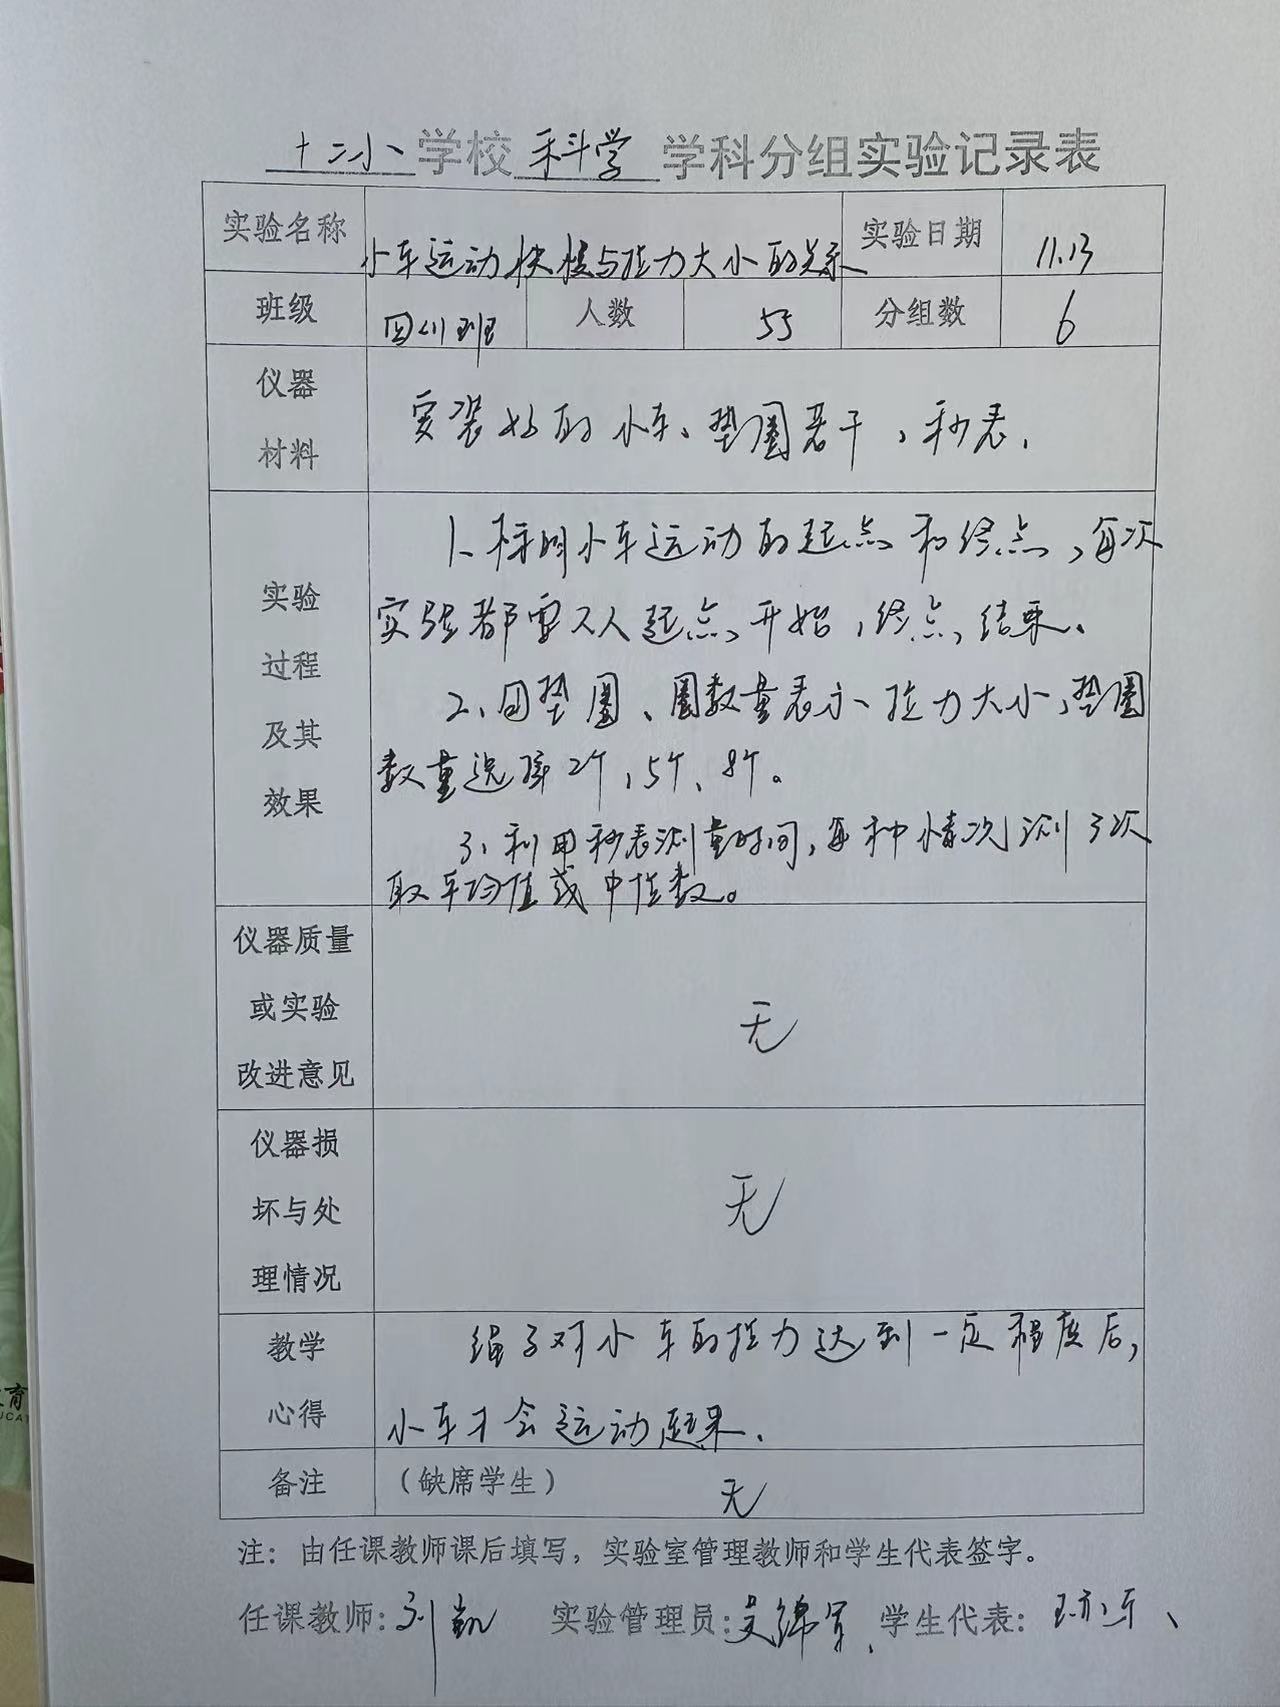 十二小学校科学学科分组实验记录表
实验名称 小车运动快慢与拉力大小的关系 实验日期 11.13
班级 四(1)班 人数 55 分组数 6
仪器
材料
安装好的小车、垫圈若干,秒表.
实验
过程
及其
效果
1、标明小车运动的起点和终点,每次
实验都要从起点开始,终点结束。
2、用垫圈、圈数量表示拉力大小,垫圈
数量选择2个,5个、8个。
3、利用秒表测量时间,每种情况测3次
取平均值或中位数。
仪器质量
或实验
改进意见
无
仪器损
坏与处
理情况
无
教学
心得
绳子对小车的拉力达到一定程度后,
小车才会运动起来.
备注 (缺席学生) 无
注:由任课教师课后填写,实验室管理教师和学生代表签字。
任课教师:刘凯 实验管理员: 学生代表:
育
UCAT